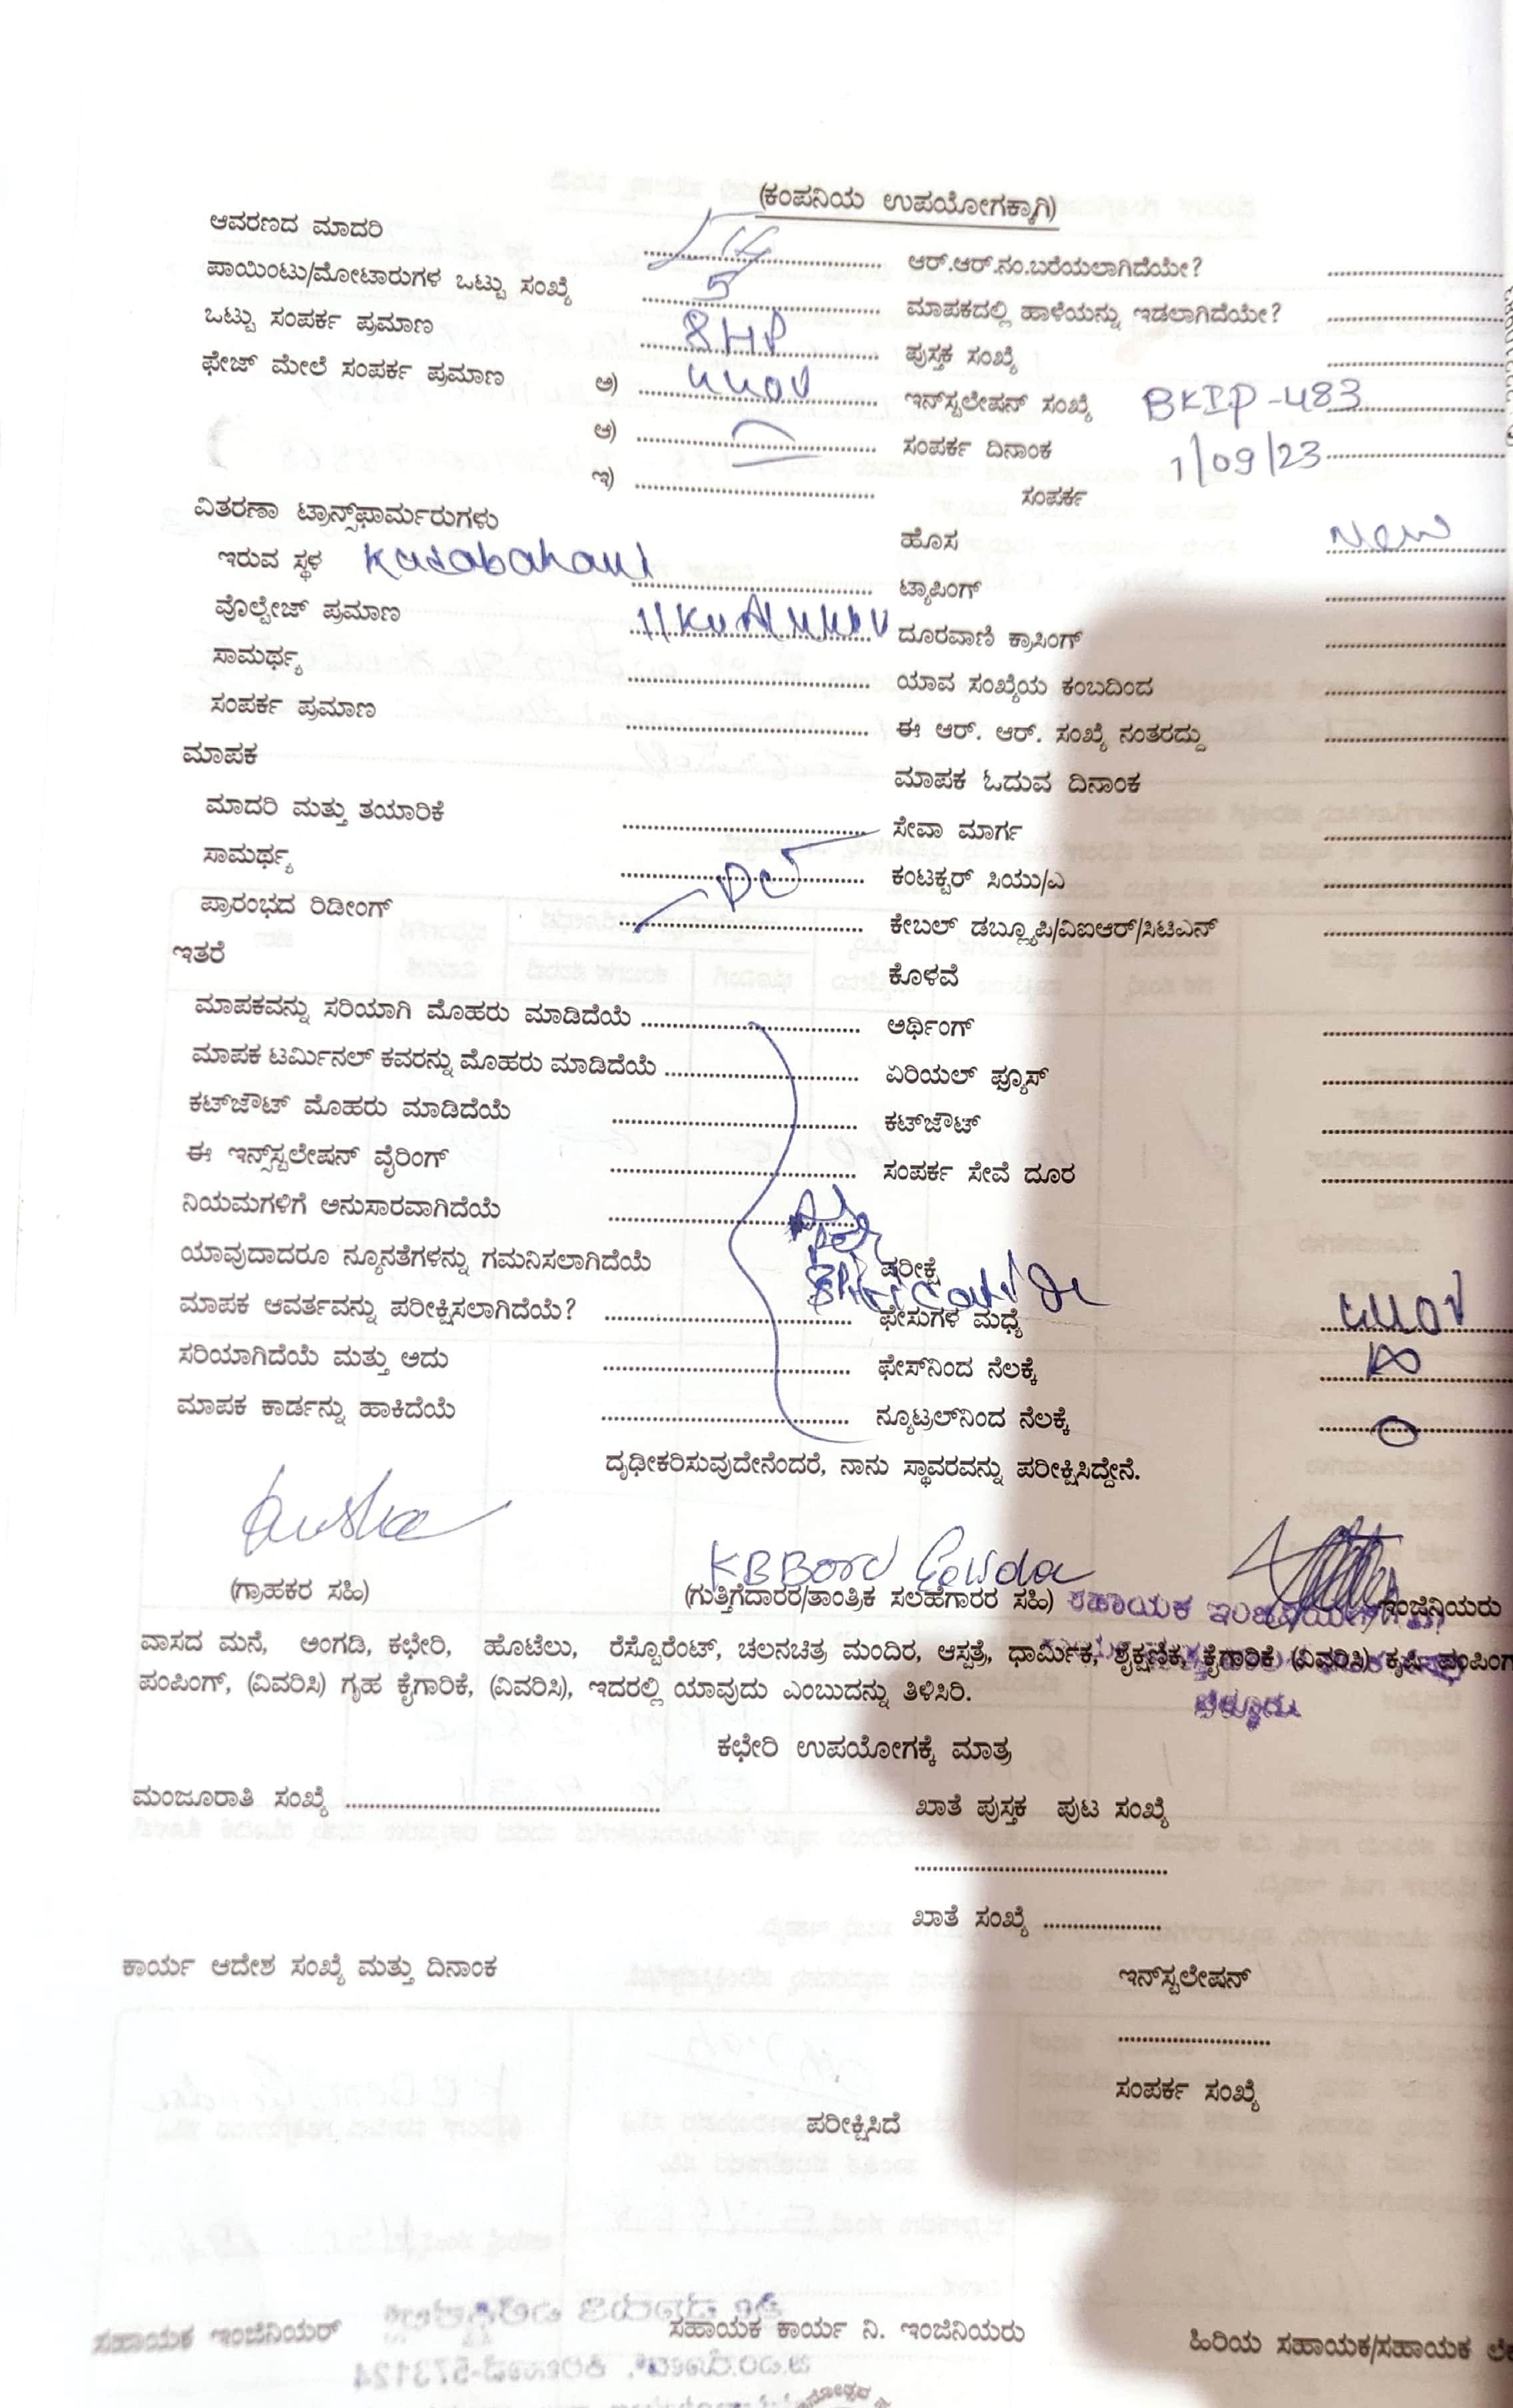 (ಕಂಪನಿಯ ಉಪಯೋಗಕ್ಕಾಗಿ)
ಆವರಣದ ಮಾದರಿ .......... ಆರ್.ಆರ್.ನಂ.ಬರೆಯಲಾಗಿದೆಯೇ? ..........
ಪಾಯಿಂಟು/ಮೋಟಾರುಗಳ ಒಟ್ಟು ಸಂಖ್ಯೆ 5 ಮಾಪಕದಲ್ಲಿ ಹಾಳೆಯನ್ನು ಇಡಲಾಗಿದೆಯೇ? ..........
ಒಟ್ಟು ಸಂಪರ್ಕ ಪ್ರಮಾಣ 8HP ಪುಸ್ತಕ ಸಂಖ್ಯೆ ..........
ಫೇಜ್ ಮೇಲೆ ಸಂಪರ್ಕ ಪ್ರಮಾಣ ಅ) 440V ಇನ್‌ಸ್ಟಲೇಷನ್ ಸಂಖ್ಯೆ BKIP-483
ಆ) .......... ಸಂಪರ್ಕ ದಿನಾಂಕ 1/09/23
ಇ) .......... ಸಂಪರ್ಕ
ವಿತರಣಾ ಟ್ರಾನ್ಸ್‌ಫಾರ್ಮರುಗಳು ಹೊಸ New
ಇರುವ ಸ್ಥಳ .......... ಟ್ಯಾಪಿಂಗ್ ..........
ವೊಲ್ಟೇಜ್ ಪ್ರಮಾಣ .......... ದೂರವಾಣಿ ಕ್ರಾಸಿಂಗ್ ..........
ಸಾಮರ್ಥ್ಯ .......... ಯಾವ ಸಂಖ್ಯೆಯ ಕಂಬದಿಂದ ..........
ಸಂಪರ್ಕ ಪ್ರಮಾಣ .......... ಈ ಆರ್. ಆರ್. ಸಂಖ್ಯೆ ನಂತರದ್ದು ..........
ಮಾಪಕ ಮಾಪಕ ಓದುವ ದಿನಾಂಕ
ಮಾದರಿ ಮತ್ತು ತಯಾರಿಕೆ .......... ಸೇವಾ ಮಾರ್ಗ ..........
ಸಾಮರ್ಥ್ಯ .......... ಕಂಟಕ್ಟರ್ ಸಿಯು/ಎ ..........
ಪ್ರಾರಂಭದ ರಿಡೀಂಗ್ .......... ಕೇಬಲ್ ಡಬ್ಲ್ಯೂಪಿ/ವಿಐಆರ್/ಸಿಟಿಎನ್ ..........
ಇತರೆ ಕೊಳವೆ
ಮಾಪಕವನ್ನು ಸರಿಯಾಗಿ ಮೊಹರು ಮಾಡಿದೆಯೆ .......... ಅರ್ಥಿಂಗ್ ..........
ಮಾಪಕ ಟರ್ಮಿನಲ್ ಕವರನ್ನು ಮೊಹರು ಮಾಡಿದೆಯೆ .......... ಏರಿಯಲ್ ಫ್ಯೂಸ್ ..........
ಕಟ್‌ಔಟ್ ಮೊಹರು ಮಾಡಿದೆಯೆ .......... ಕಟ್‌ಔಟ್ ..........
ಈ ಇನ್ಸ್‌ಸ್ಟಲೇಷನ್ ವೈರಿಂಗ್ .......... ಸಂಪರ್ಕ ಸೇವೆ ದೂರ ..........
ನಿಯಮಗಳಿಗೆ ಅನುಸಾರವಾಗಿದೆಯೆ ..........
ಯಾವುದಾದರೂ ನ್ಯೂನತೆಗಳನ್ನು ಗಮನಿಸಲಾಗಿದೆಯೆ ಪರೀಕ್ಷೆ
ಮಾಪಕ ಆವರ್ತವನ್ನು ಪರೀಕ್ಷಿಸಲಾಗಿದೆಯೆ? .......... ಫೇಸುಗಳ ಮಧ್ಯೆ 440V
ಸರಿಯಾಗಿದೆಯೆ ಮತ್ತು ಅದು .......... ಫೇಸ್‌ನಿಂದ ನೆಲಕ್ಕೆ
ಮಾಪಕ ಕಾರ್ಡನ್ನು ಹಾಕಿದೆಯೆ .......... ನ್ಯೂಟ್ರಲ್‌ನಿಂದ ನೆಲಕ್ಕೆ 0
ದೃಢೀಕರಿಸುವುದೇನೆಂದರೆ, ನಾನು ಸ್ಥಾವರವನ್ನು ಪರೀಕ್ಷಿಸಿದ್ದೇನೆ.
(ಗ್ರಾಹಕರ ಸಹಿ) (ಗುತ್ತಿಗೆದಾರರ/ತಾಂತ್ರಿಕ ಸಲಹೆಗಾರರ ಸಹಿ) ಸಹಾಯಕ ಇಂಜಿನಿಯರು
ವಾಸದ ಮನೆ, ಅಂಗಡಿ, ಕಛೇರಿ, ಹೊಟೆಲು, ರೆಸ್ಟೊರೆಂಟ್, ಚಲನಚಿತ್ರ ಮಂದಿರ, ಆಸ್ಪತ್ರೆ, ಧಾರ್ಮಿಕ, ಶೈಕ್ಷಣಿಕ, ಕೈಗಾರಿಕೆ (ವಿವರಿಸಿ) ಕೃಷಿ ಪಂಪಿಂಗ್
ಪಂಪಿಂಗ್, (ವಿವರಿಸಿ) ಗೃಹ ಕೈಗಾರಿಕೆ, (ವಿವರಿಸಿ), ಇದರಲ್ಲಿ ಯಾವುದು ಎಂಬುದನ್ನು ತಿಳಿಸಿರಿ.
ಕಛೇರಿ ಉಪಯೋಗಕ್ಕೆ ಮಾತ್ರ
ಮಂಜೂರಾತಿ ಸಂಖ್ಯೆ .......... ಖಾತೆ ಪುಸ್ತಕ ಪುಟ ಸಂಖ್ಯೆ
..........
ಖಾತೆ ಸಂಖ್ಯೆ ..........
ಕಾರ್ಯ ಆದೇಶ ಸಂಖ್ಯೆ ಮತ್ತು ದಿನಾಂಕ ಇನ್‌ಸ್ಟಲೇಷನ್
..........
ಸಂಪರ್ಕ ಸಂಖ್ಯೆ
ಪರೀಕ್ಷಿಸಿದೆ
ಸಹಾಯಕ ಇಂಜಿನಿಯರ್ ಸಹಾಯಕ ಕಾರ್ಯ ನಿ. ಇಂಜಿನಿಯರು ಹಿರಿಯ ಸಹಾಯಕ/ಸಹಾಯಕ